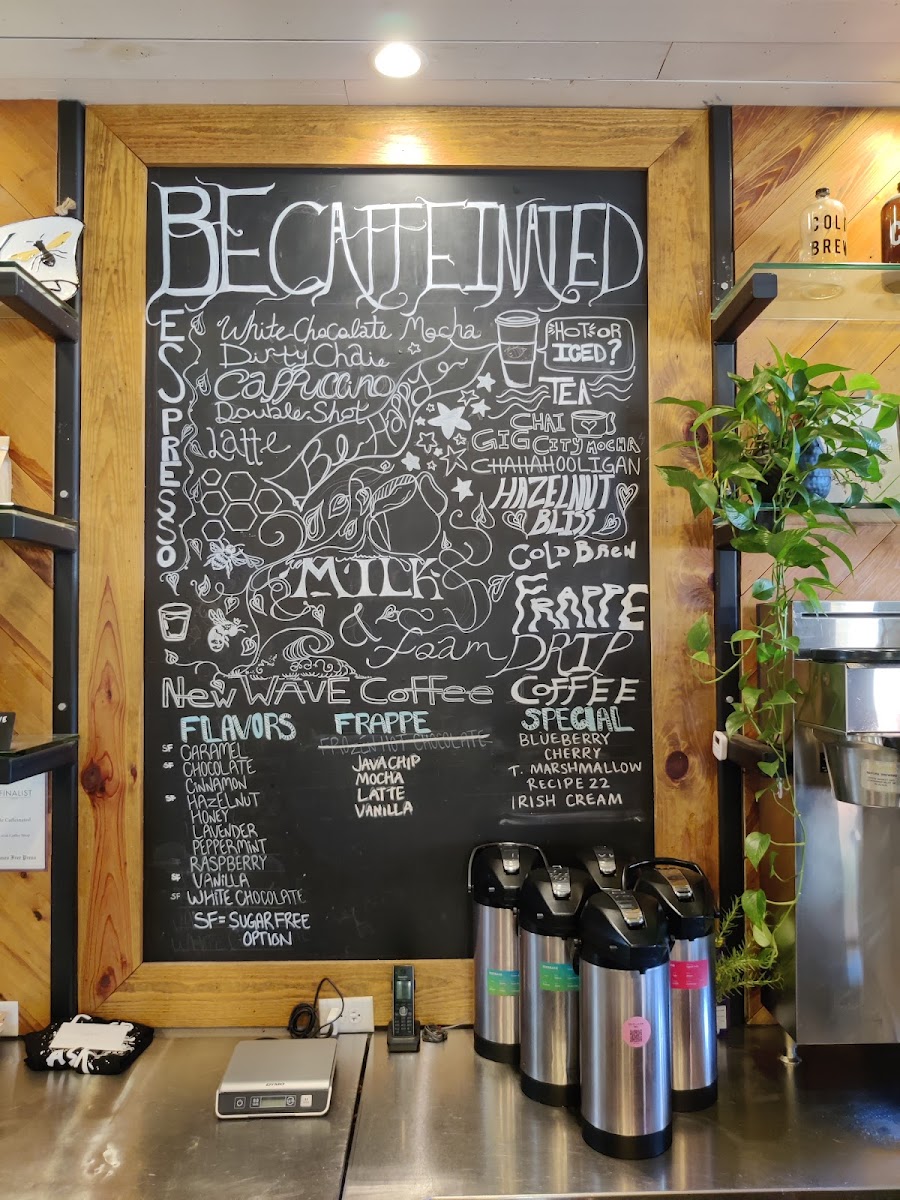 BECAFFEINATED
ESPRESSO
White Chocolate Mocha
Dirty Chaie
Cappuccino
Double-Shot
Latte
Be
HOT OR
ICED?
TEA
CHAI
GIG CITY MOCHA
CHAHAHOOLIGAN
HAZELNUT
BLISS
COLD BREW
MILK
& Foam
FRAPPE
DRIP
COFFEE
New WAVE Coffee
FLAVORS
SF CARAMEL
SF CHOCOLATE
CINNAMON
SF HAZELNUT
HONEY
LAVENDER
PEPPERMINT
RASPBERRY
SF VANILLA
SF WHITE CHOCOLATE
SF = SUGAR FREE
OPTION
FRAPPE
FROZEN HOT CHOCOLATE
JAVA CHIP
MOCHA
LATTE
VANILLA
SPECIAL
BLUEBERRY
CHERRY
T. MARSHMALLOW
RECIPE 22
IRISH CREAM
COLD
BREW
FINALIST